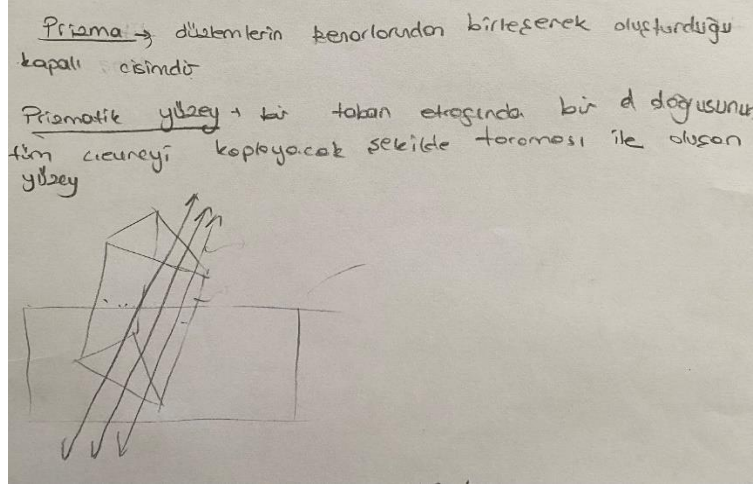 Prizma → düzlemlerin kenarlarından birleşerek oluşturduğu
kapalı cisimdir
Prizmatik yüzey → bir taban etrafında bir d doğrusunun
tüm çevreyi kaplayacak şekilde taraması ile oluşan
yüzey